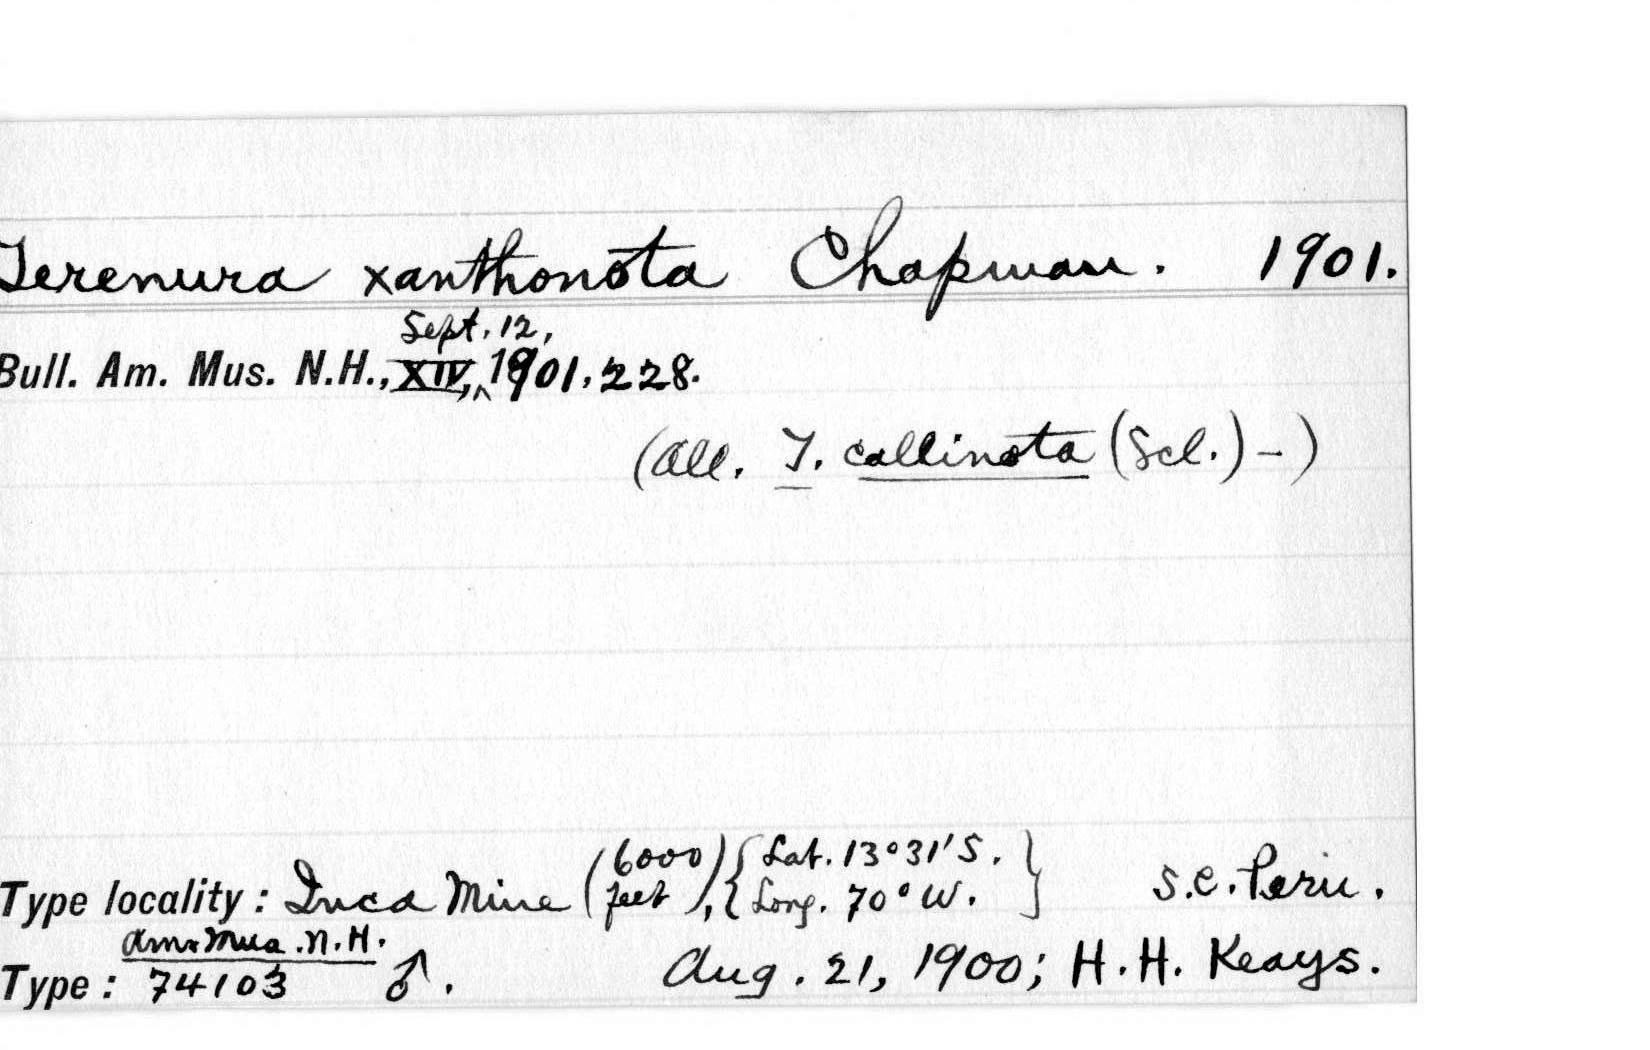 Terenura xanthonota Chapman. 1901.
Sept. 12,
Bull. Am. Mus. N.H., XIV, ^ 1901, 228.
(All. T. callinota (Scl.) – )
Type locality: Inca Mine (6000 feet), {Lat. 13°31'S. Long. 70° W.} S.E. Peru.
Am. Mus. N.H.
Type: 74103 ♂. Aug. 21, 1900; H.H. Keays.